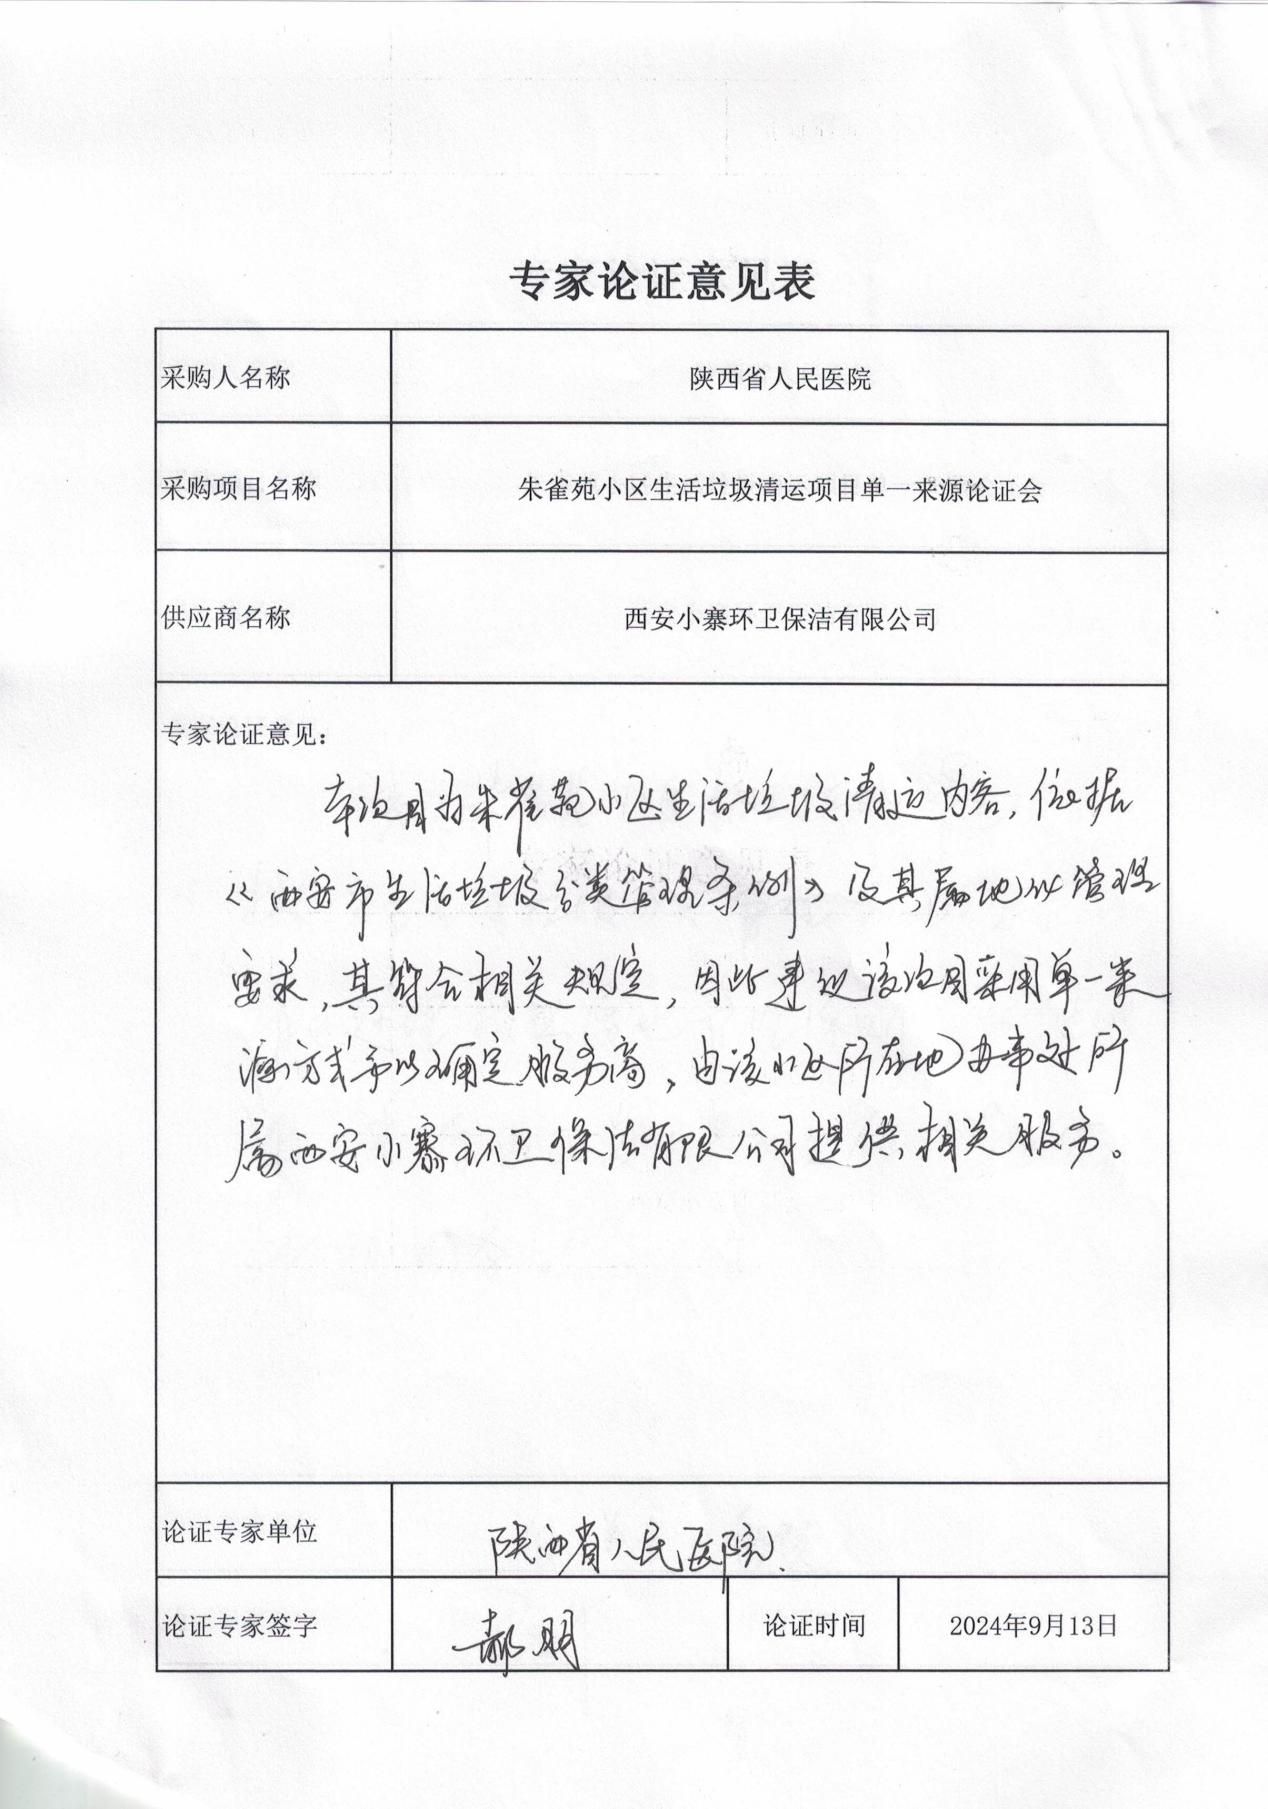 专家论证意见表
采购人名称 陕西省人民医院
采购项目名称 朱雀苑小区生活垃圾清运项目单一来源论证会
供应商名称 西安小寨环卫保洁有限公司
专家论证意见：
本项目为朱雀苑小区生活垃圾清运内容，依据
《西安市生活垃圾分类管理条例》及其属地化管理
要求，其符合相关规定，因此建议该项目采用单一来
源方式予以确定服务商，由该小区所在地办事处所
属西安小寨环卫保洁有限公司提供相关服务。
论证专家单位 陕西省人民医院
论证专家签字 郝明 论证时间 2024年9月13日